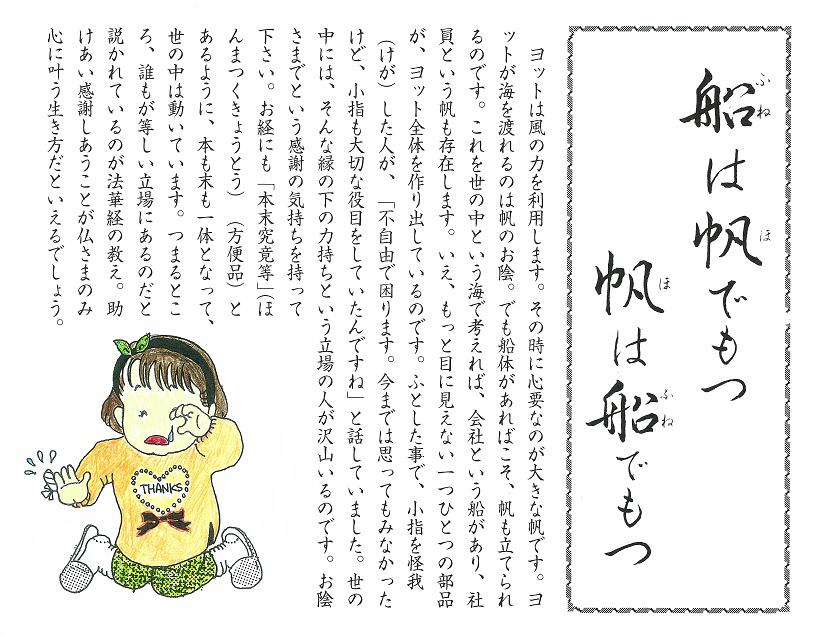 船は帆でもつ
帆は船でもつ
ふね
ほ
ほ
ふね
ヨットは風の力を利用します。その時に心要なのが大きな帆です。ヨ
ットが海を渡れるのは帆のお陰。でも船体があればこそ、帆も立てられ
るのです。これを世の中という海で考えれば、会社という船があり、社
員という帆も存在します。いえ、もっと目に見えない一つひとつの部品
が、ヨット全体を作り出しているのです。ふとした事で、小指を怪我
（けが）した人が、「不自由で困ります。今までは思ってもみなかった
けど、小指も大切な役目をしていたんですね」と話していました。世の
中には、そんな縁の下の力持ちという立場の人が沢山いるのです。お陰
さまでという感謝の気持ちを持って
下さい。お経にも「本末究竟等」（ほ
んまつくきょうとう）（方便品）と
あるように、本も末も一体となって、
世の中は動いています。つまるとこ
ろ、誰もが等しい立場にあるのだと
説かれているのが法華経の教え。助
けあい感謝しあうことが仏さまのみ
心に叶う生き方だといえるでしょう。
THANKS